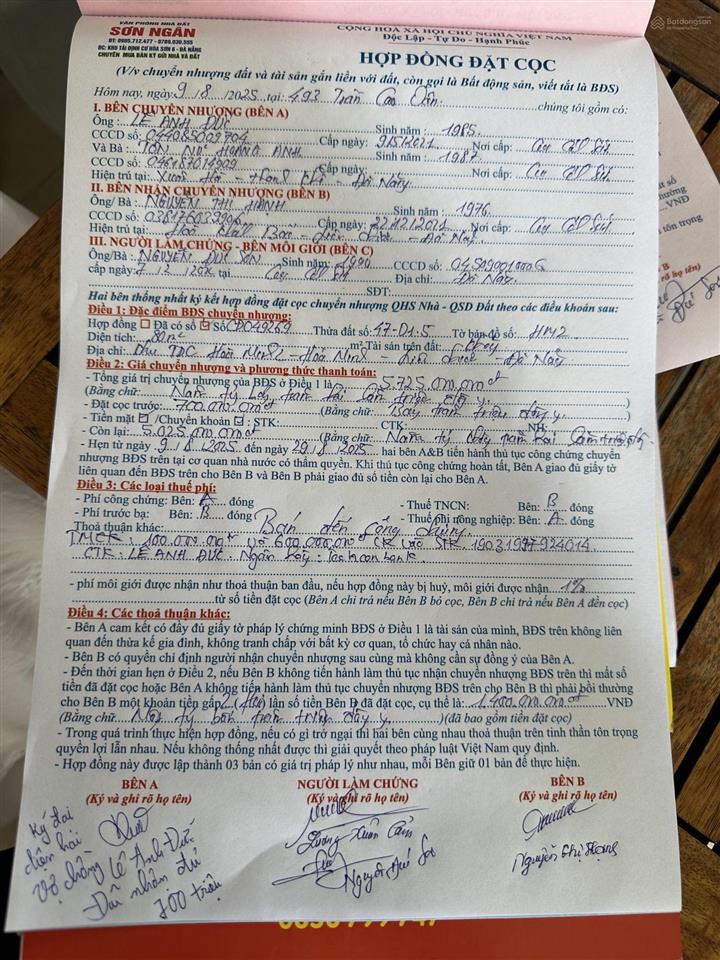 Batdongsan
VĂN PHÒNG NHÀ ĐẤT
SƠN NGÂN
ĐT: 0905.712.477 - 0789.030.595
ĐC: KHU TÁI ĐỊNH CƯ HÒA SƠN 6 - ĐÀ NẴNG
CHUYÊN MUA BÁN KÝ GỬI NHÀ VÀ ĐẤT
CỘNG HÒA XÃ HỘI CHỦ NGHĨA VIỆT NAM
Độc Lập - Tự Do - Hạnh Phúc
HỢP ĐỒNG ĐẶT CỌC
(V/v chuyển nhượng đất và tài sản gắn liền với đất, còn gọi là Bất động sản, viết tắt là BĐS)
Hôm nay, ngày 9/8/2025 tại: 493 Trần Cao Vân chúng tôi gồm có:
I. BÊN CHUYỂN NHƯỢNG (BÊN A)
Ông: LÊ ANH ĐỨC Sinh năm: 1985
CCCD số: 044085009704 Cấp ngày: 9/5/2021 Nơi cấp:
Và Bà: TÔN NỮ HOÀNG ANH Sinh năm: 1987
CCCD số: Cấp ngày: Nơi cấp:
Hiện trú tại: Đà Nẵng
II. BÊN NHẬN CHUYỂN NHƯỢNG (BÊN B)
Ông/ Bà: NGUYỄN THỊ HẠNH Sinh năm: 1976
CCCD số: Cấp ngày: 22/12/2021 Nơi cấp:
Hiện trú tại: Đà Nẵng
III. NGƯỜI LÀM CHỨNG - BÊN MÔI GIỚI (BÊN C)
Ông/Bà: NGUYỄN ĐỨC SƠN Sinh năm: CCCD số:
cấp ngày: tại Địa chỉ: Đà Nẵng
SĐT:
Hai bên thống nhất ký kết hợp đồng đặt cọc chuyển nhượng QHS Nhà - QSD Đất theo các điều khoản sau:
Điều 1: Đặc điểm BĐS chuyển nhượng:
Hợp đồng Đã có sổ Số: CD049269 Thửa đất số: 17-D1.5 Tờ bản đồ số: HM2
Diện tích: 80m² m² Tài sản trên đất:
Địa chỉ: Khu TĐC Hòa Minh 2 - Hòa Minh - Liên Chiểu - Đà Nẵng
Điều 2: Giá chuyển nhượng và phương thức thanh toán:
- Tổng giá trị chuyển nhượng của BĐS ở Điều 1 là 5.725.000.000đ
(Bằng chữ: Năm tỷ bảy trăm hai lăm triệu đồng y)
- Đặt cọc trước: 700.000.000đ (Bằng chữ: Bảy trăm triệu đồng y)
- Tiền mặt /Chuyển khoản : STK: CTK: NH:
- Còn lại: 5.025.000.000đ (Bằng chữ: Năm tỷ không trăm hai lăm triệu)
- Hẹn từ ngày 9/8/2025 đến ngày 29/8/2025 hai bên A&B tiến hành thủ tục công chứng chuyển
nhượng BĐS trên tại cơ quan nhà nước có thẩm quyền. Khi thủ tục công chứng hoàn tất, Bên A giao đủ giấy tờ
liên quan đến BĐS trên cho Bên B và Bên B phải giao đủ số tiền còn lại cho Bên A.
Điều 3: Các loại thuế phí:
- Phí công chứng: Bên: A đóng - Thuế TNCN: Bên: B đóng
- Phí trước bạ: Bên: B đóng - Thuế phí nông nghiệp: Bên: A đóng
Thoả thuận khác: Bán đến công chứng
TMCK: 100.000.000đ và 600.000.000đ CK vào STK 19031997924014
CTK: LÊ ANH ĐỨC. Ngân hàng: Techcombank
- phí môi giới được nhận như thoả thuận ban đầu, nếu hợp đồng này bị huỷ, môi giới được nhận 1%
từ số tiền đặt cọc (Bên A chi trả nếu Bên B bỏ cọc, Bên B chi trả nếu Bên A đền cọc)
Điều 4: Các thoả thuận khác:
- Bên A cam kết có đầy đủ giấy tờ pháp lý chứng minh BĐS ở Điều 1 là tài sản của mình, BĐS trên không liên
quan đến thừa kế gia đình, không tranh chấp với bất kỳ cơ quan, tổ chức hay cá nhân nào.
- Bên B có quyền chỉ định người nhận chuyển nhượng sau cùng mà không cần sự đồng ý của Bên A.
- Đến thời gian hẹn ở Điều 2, nếu Bên B không tiến hành làm thủ tục nhận chuyển nhượng BĐS trên thì mất số
tiền đã đặt cọc hoặc Bên A không tiến hành làm thủ tục chuyển nhượng BĐS trên cho Bên B thì phải bồi thường
cho Bên B một khoản tiền gấp 2 (Hai) lần số tiền Bên B đã đặt cọc, cụ thể là: 1.400.000.000đ VNĐ
(Bằng chữ: Một tỷ bốn trăm triệu đồng y) (đã bao gồm tiền đặt cọc)
- Trong quá trình thực hiện hợp đồng, nếu có gì trở ngại thì hai bên cùng nhau thoả thuận trên tinh thần tôn trọng
quyền lợi lẫn nhau. Nếu không thống nhất được thì giải quyết theo pháp luật Việt Nam quy định.
- Hợp đồng này được lập thành 03 bản có giá trị pháp lý như nhau, mỗi Bên giữ 01 bản để thực hiện.
BÊN A NGƯỜI LÀM CHỨNG BÊN B
(Ký và ghi rõ họ tên) (Ký và ghi rõ họ tên) (Ký và ghi rõ họ tên)
Ký đại
diện hai
vợ chồng Lê Anh Đức
Đã nhận đủ
700 triệu
Nguyễn Đức Sơn
Nguyễn Thị Hạnh